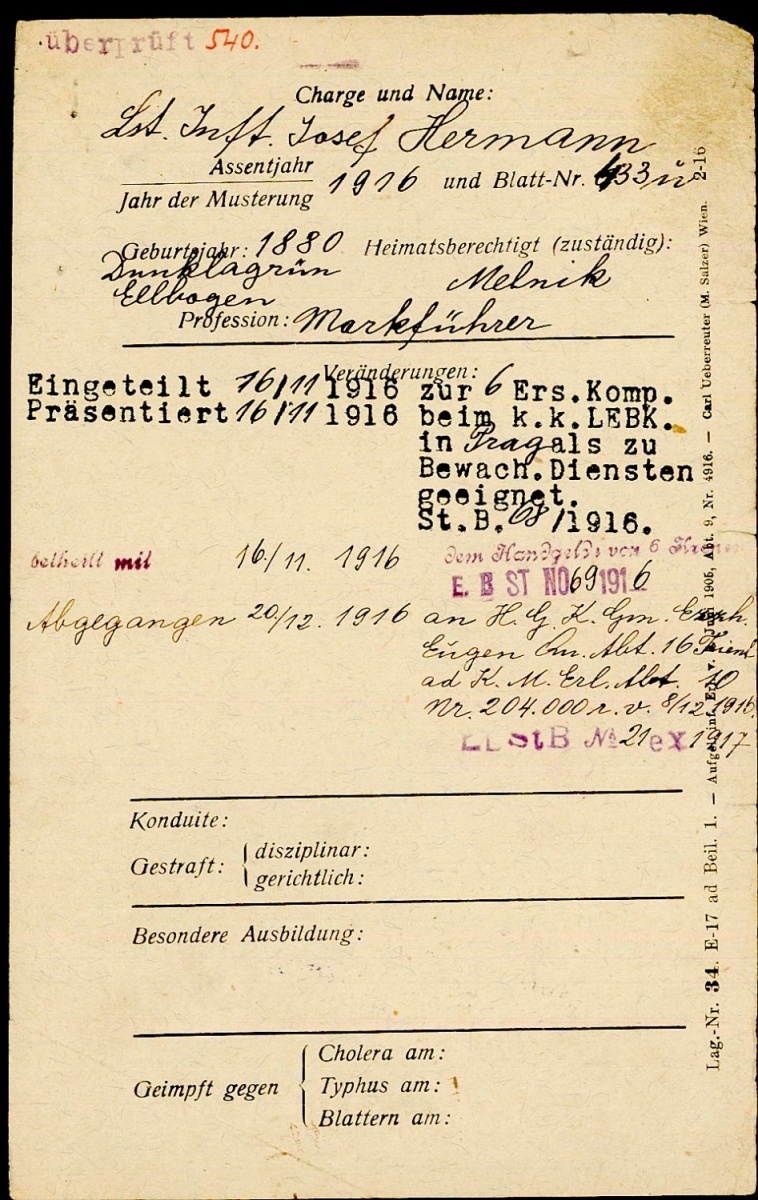 überprüft 540.
Charge und Name:
Lst. Inft. Josef Hermann
Assentjahr
Jahr der Musterung 1916 und Blatt-Nr. 433
Geburtsjahr: 1880 Heimatsberechtigt (zuständig):
Dunklagrün Melnik
Ellbogen
Profession: Markführer
Veränderungen:
Eingeteilt 16/11 1916 zur 6 Ers.Komp.
Präsentiert 16/11 1916 beim k.k.LEBK.
in Prag als zu
Bewach.Diensten
geeignet.
St.B. 68/1916.
betheilt mit 16/11. 1916 dem Handgelde von 6 Kronen
E. B ST NO 69 1916
Abgegangen 20/12. 1916 an H. G. K. Gm. Erzh.
Eugen Qu. Abt. 16
ad K. M. Erl. Abt. 10
Nr. 204.000 r. v. 8/12 1916.
StB № 21 ex 1917
Konduite:
Gestraft: disziplinar:
gerichtlich:
Besondere Ausbildung:
Geimpft gegen Cholera am:
Typhus am:
Blattern am:
Lag.-Nr. 34. E-17 ad Beil. 1. — Aufgel. inf. Erl. v. Juni 1905, Abt. 9, Nr. 4916. — Carl Ueberreuter (M. Salzer) Wien. 2-16